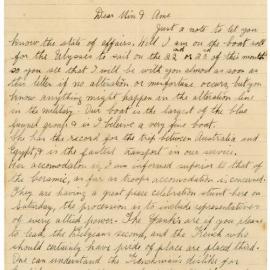 Dear Min & Ame
Just a note to let you
know the state of affairs. Well I am on the boat roll
for the Ulysses to sail on the 22nd or 23rd of this month
so you see that I will be with you almost as soon as
this letter if no alteration or misfortune occurs but you
know anything might happen in the alteration line
in the military. Our boat is the largest of the blue
funnel group & is I believe a very fine boat.
She has the record for the trip between Australia and
Egypt & is the fastest transport in our service.
Her accomodation is I am informed superior to that of
the Ceramic, as far as troops accomodation is concerned.
They are having a great peace celebration stunt here on
Saturday, the procession is to include representatives
of every allied power. The Yanks are if you please
to lead, the Belgians second, and the French who
should certainly have pride of place are placed third.
One can understand the Frenchman's dislike for